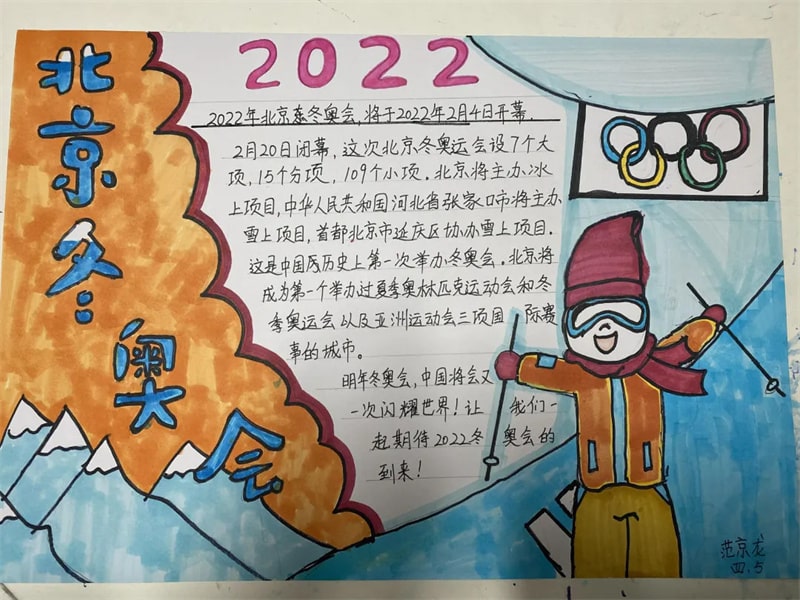 北京冬奥会
2022
2022年北京冬奥会,将于2022年2月4日开幕.
2月20日闭幕,这次北京冬奥运会设7个大
项,15个分项,109个小项.北京将主办冰
上项目,中华人民共和国河北省张家口市将主办
雪上项目,首都北京市延庆区协办雪上项目.
这是中国历史上第一次举办冬奥会.北京将
成为第一个举办过夏季奥林匹克运动会和冬
季奥运会以及亚洲运动会三项国际赛
事的城市。
明年冬奥会,中国将会又
一次闪耀世界!让我们一
起期待2022冬奥会的
到来!
范京龙
四.5